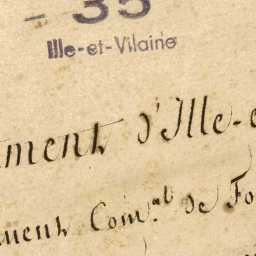 - 35
Ille-et-Vilaine
ment d'Ille-e
ment Com.al de Fo